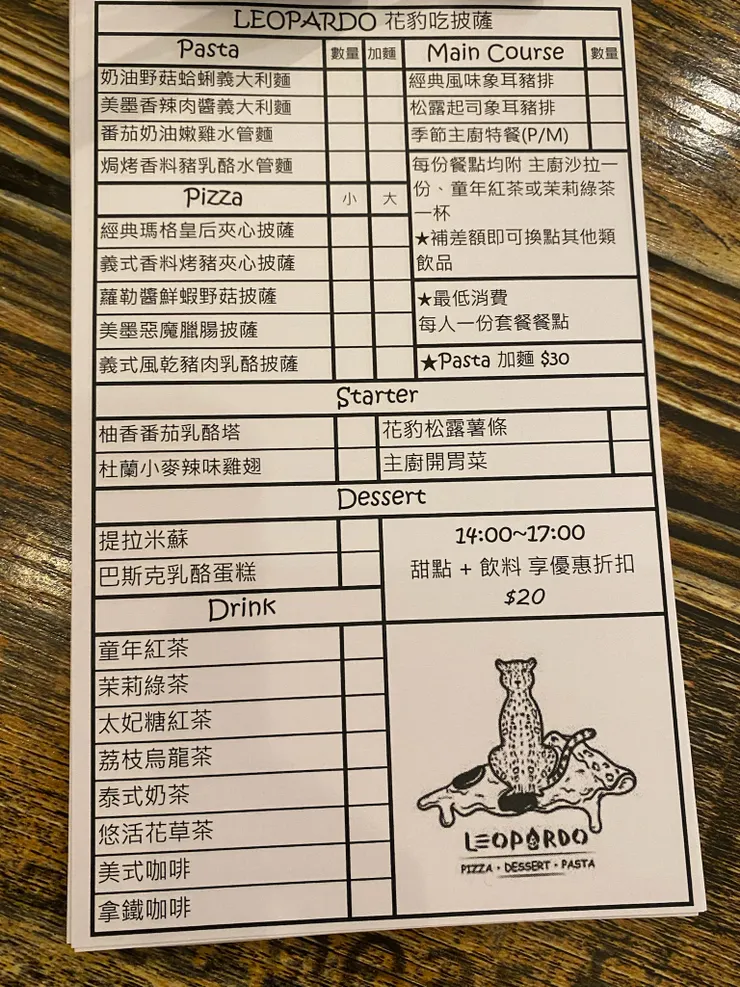 LEOPARDO 花豹吃披薩
Pasta 數量 加麵
奶油野菇蛤蜊義大利麵
美墨香辣肉醬義大利麵
番茄奶油嫩雞水管麵
焗烤香料豬乳酪水管麵
Pizza 小 大
經典瑪格皇后夾心披薩
義式香料烤豬夾心披薩
蘿勒醬鮮蝦野菇披薩
美墨惡魔臘腸披薩
義式風乾豬肉乳酪披薩
Main Course 數量
經典風味象耳豬排
松露起司象耳豬排
季節主廚特餐(P/M)
每份餐點均附 主廚沙拉一
份、童年紅茶或茉莉綠茶
一杯
★補差額即可換點其他類
飲品
★最低消費
每人一份套餐餐點
★Pasta 加麵 $30
Starter
柚香番茄乳酪塔
花豹松露薯條
杜蘭小麥辣味雞翅
主廚開胃菜
Dessert
提拉米蘇
巴斯克乳酪蛋糕
14:00~17:00
甜點 + 飲料 享優惠折扣
$20
Drink
童年紅茶
茉莉綠茶
太妃糖紅茶
荔枝烏龍茶
泰式奶茶
悠活花草茶
美式咖啡
拿鐵咖啡
LEOPARDO
PIZZA · DESSERT · PASTA